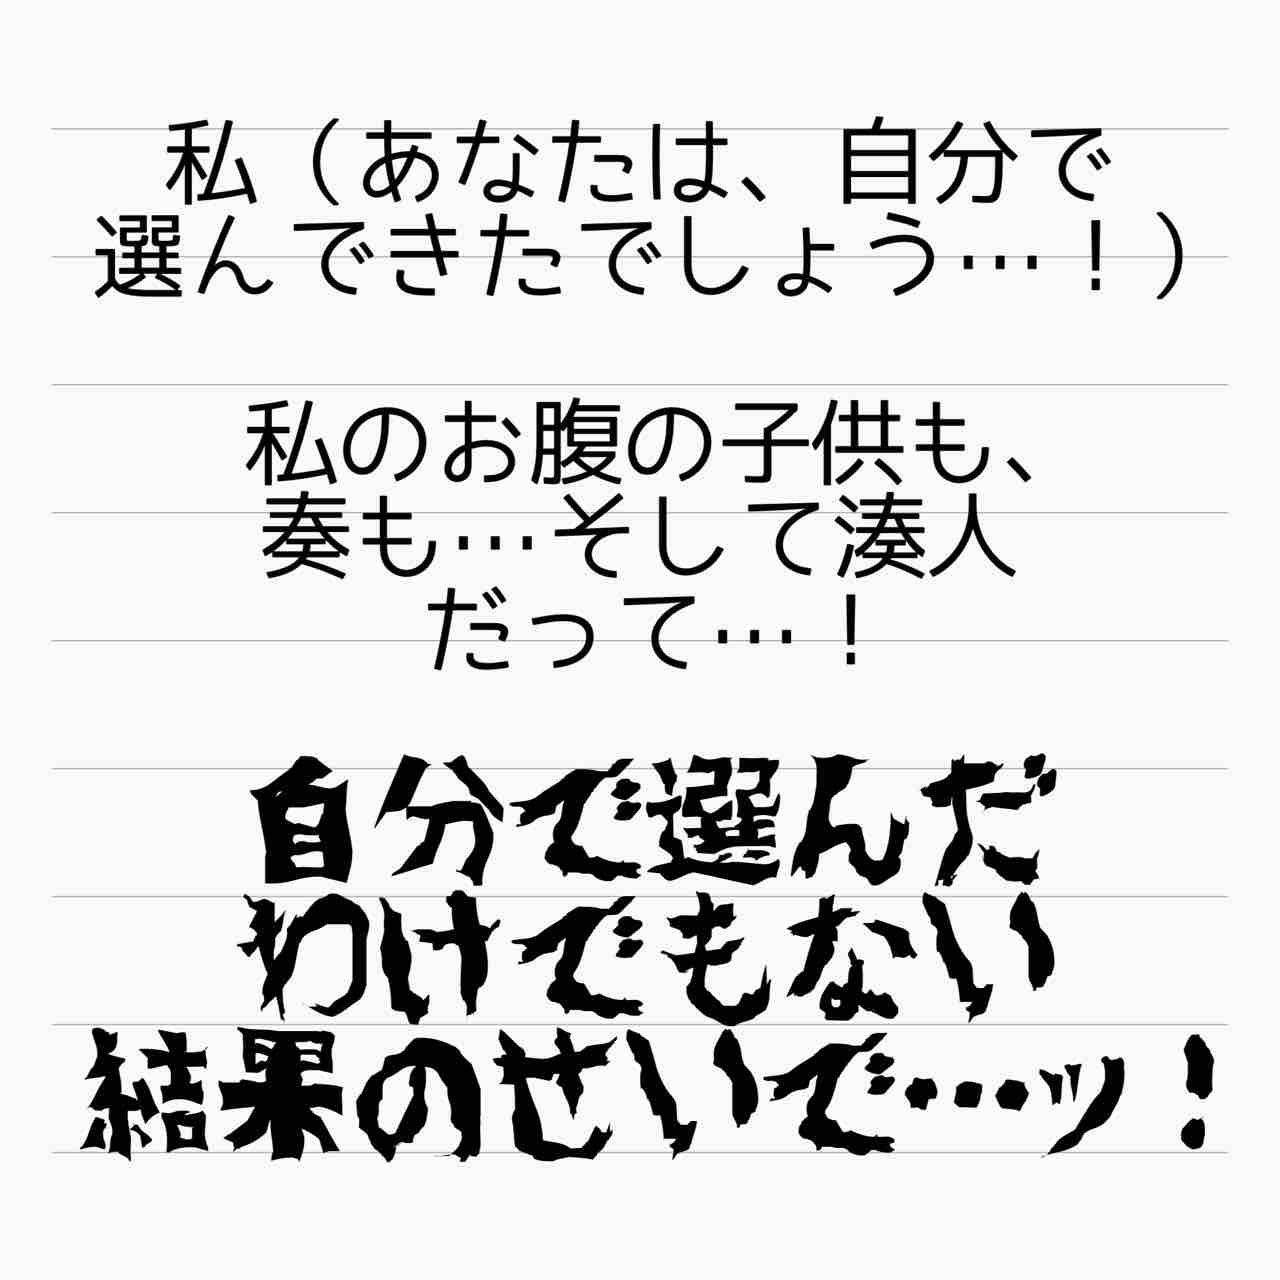 私（あなたは、自分で
選んできたでしょう…！）
私のお腹の子供も、
奏も…そして湊人
だって…！
自分で選んだ
わけでもない
結果のせいで…ッ！